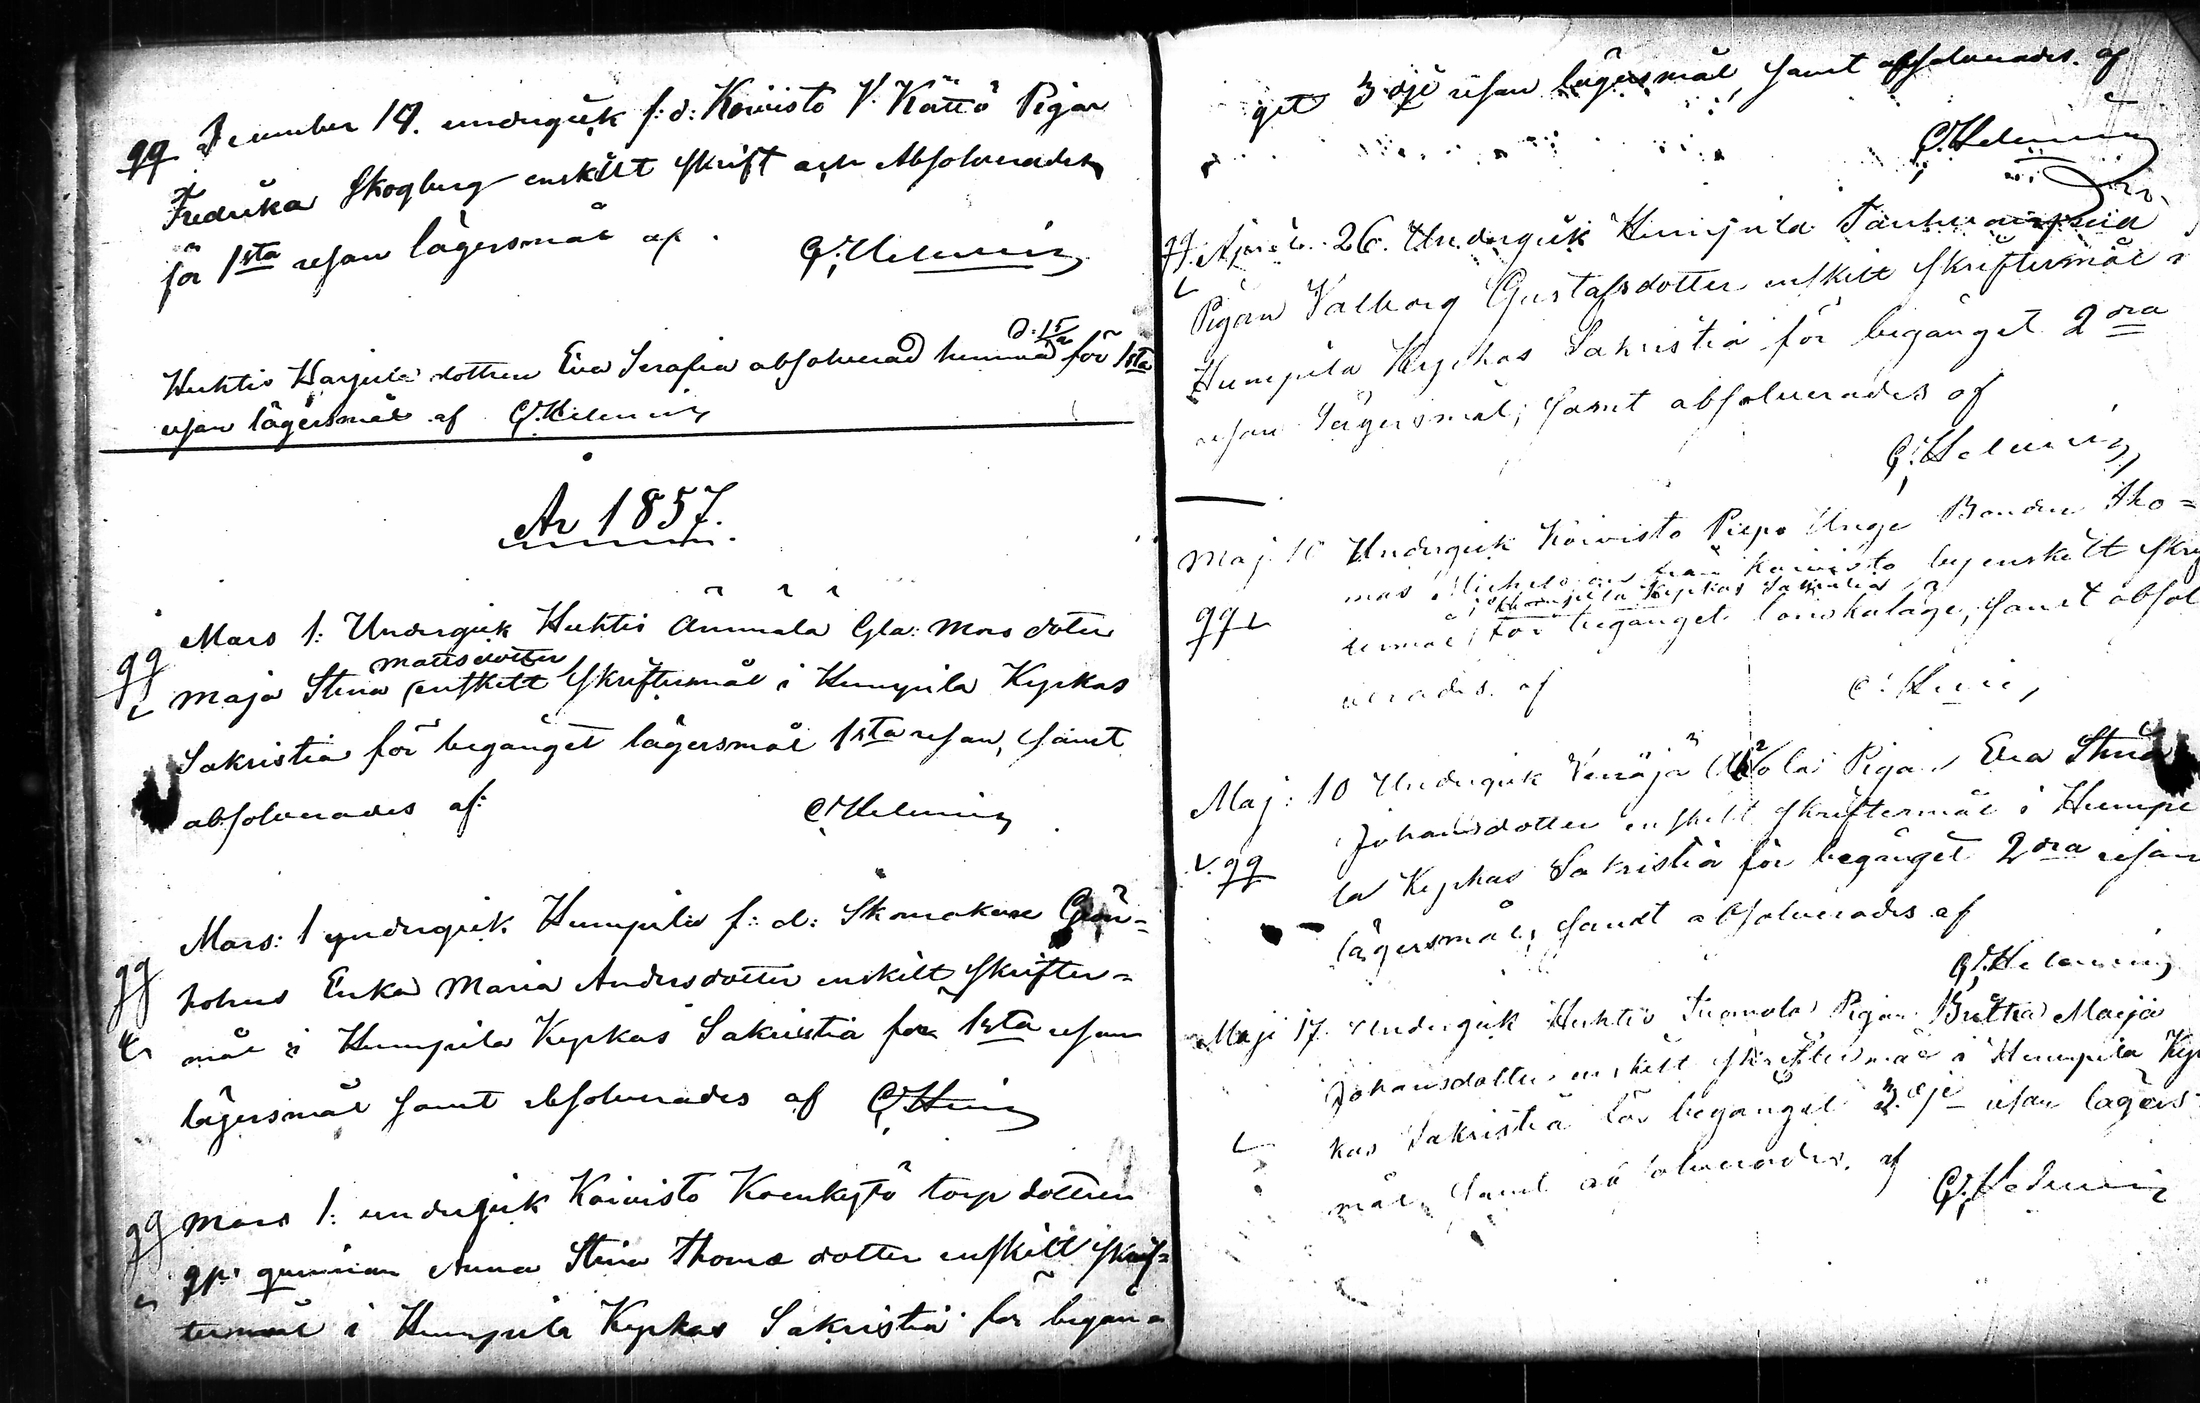 qq December 14. undergick f: d: Koivisto V. Kättö Pigan
Fredrika Skogberg enskilt skrift och Absolverades
för 1sta resan lägersmål af.
d. 15/12
Huhtis Harjula dottren Eva Serafia absolverad hemma för 1sta
resan lägersmål af
År 1857.
qq Mars 1: Undergick Huhtis Ammala Gla: Mors doter
mattsdotter
Maja Stina enskilt skriftermål i Humpila Kyrkas
Sakristia för begånget lägersmål 1sta resan, samt
absolverades af:
qq Mars: 1 undergick Humpila f: d: Skomakare Grön-
holms Erika Maria Andersdotter enskilt skrifter-
mål i Humpila Kyrkas Sakristia för 1sta resan
lägersmål samt absolverades af
qq Mars 1: undergick Koivisto Koenkytö torp dottren
qp: quinnan Anna Stina Thomæ dotter enskilt skrif-
termål i Humpila Kyrkas Sakristia för begån-
get 3dje resan lägersmål, samt absolverades. af
qq. April. 26. Undergick Humpila
Pigan Valborg Gustafsdotter enskilt skriftermål i
Humpila Kyrkas Sakristia för begånget 2dra
resan Lägersmål; samt absolverades af
Maj 10 Undergick Koivisto Piepo Unge Bonden Tho-
mas Michelsson från Koivisto by enskilt skrif
i Humpila Kyrkas Sakristia
qq termål, för begånget lönskaläge, samt absol
verades. af
Maj: 10 Undergick Venäjä Pigan Eva Stina
Johansdotter enskilt skriftermål i Humpi
qq la Kyrkas Sakristia för begånget 2dra resan
lägersmål, samt absolverades af
Maji 17. Undergick Huhtis Tuomola Pigan Britha Maja
Johansdotter enskilt skriftermål i Humpila Kyr
kas Sakristia för begånget 3dje resan lägers-
mål, samt absolverades. af